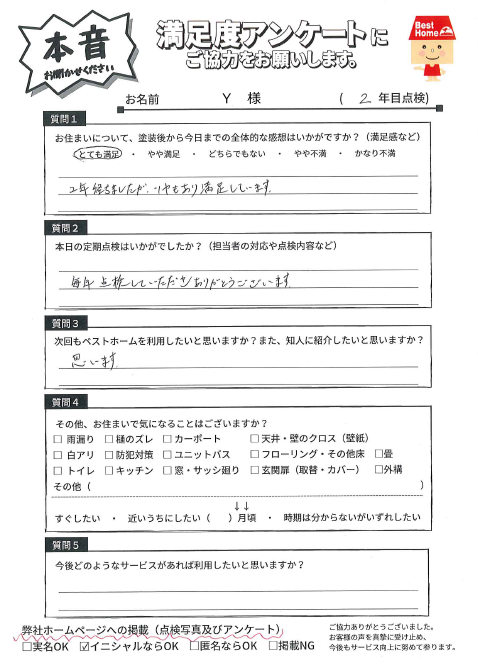 本音
お聞かせください
満足度アンケートに
ご協力をお願いします。
Best Home
お名前 Y 様 ( 2 年目点検)
質問1
お住まいについて、塗装後から今日までの全体的な感想はいかがですか？（満足感など）
とても満足 ・ やや満足 ・ どちらでもない ・ やや不満 ・ かなり不満
2年経ちましたが、ツヤもあり満足しています。
質問2
本日の定期点検はいかがでしたか？（担当者の対応や点検内容など）
毎年点検していただきありがとうございます
質問3
次回もベストホームを利用したいと思いますか？また、知人に紹介したいと思いますか？
思います
質問4
その他、お住まいで気になることはございますか？
□ 雨漏り □ 樋のズレ □ カーポート □ 天井・壁のクロス（壁紙）
□ 白アリ □ 防犯対策 □ ユニットバス □ フローリング・その他床 □畳
□ トイレ □ キッチン □ 窓・サッシ廻り □ 玄関扉（取替・カバー） □外構
その他（ ）
↓↓
すぐしたい ・ 近いうちにしたい（ ）月頃 ・ 時期は分からないがいずれしたい
質問5
今後どのようなサービスがあれば利用したいと思いますか？
弊社ホームページへの掲載（点検写真及びアンケート）
□実名OK ☑イニシャルならOK □匿名ならOK □掲載NG
ご協力ありがとうございました。
お客様の声を真摯に受け止め、
今後もサービス向上に努めて参ります。